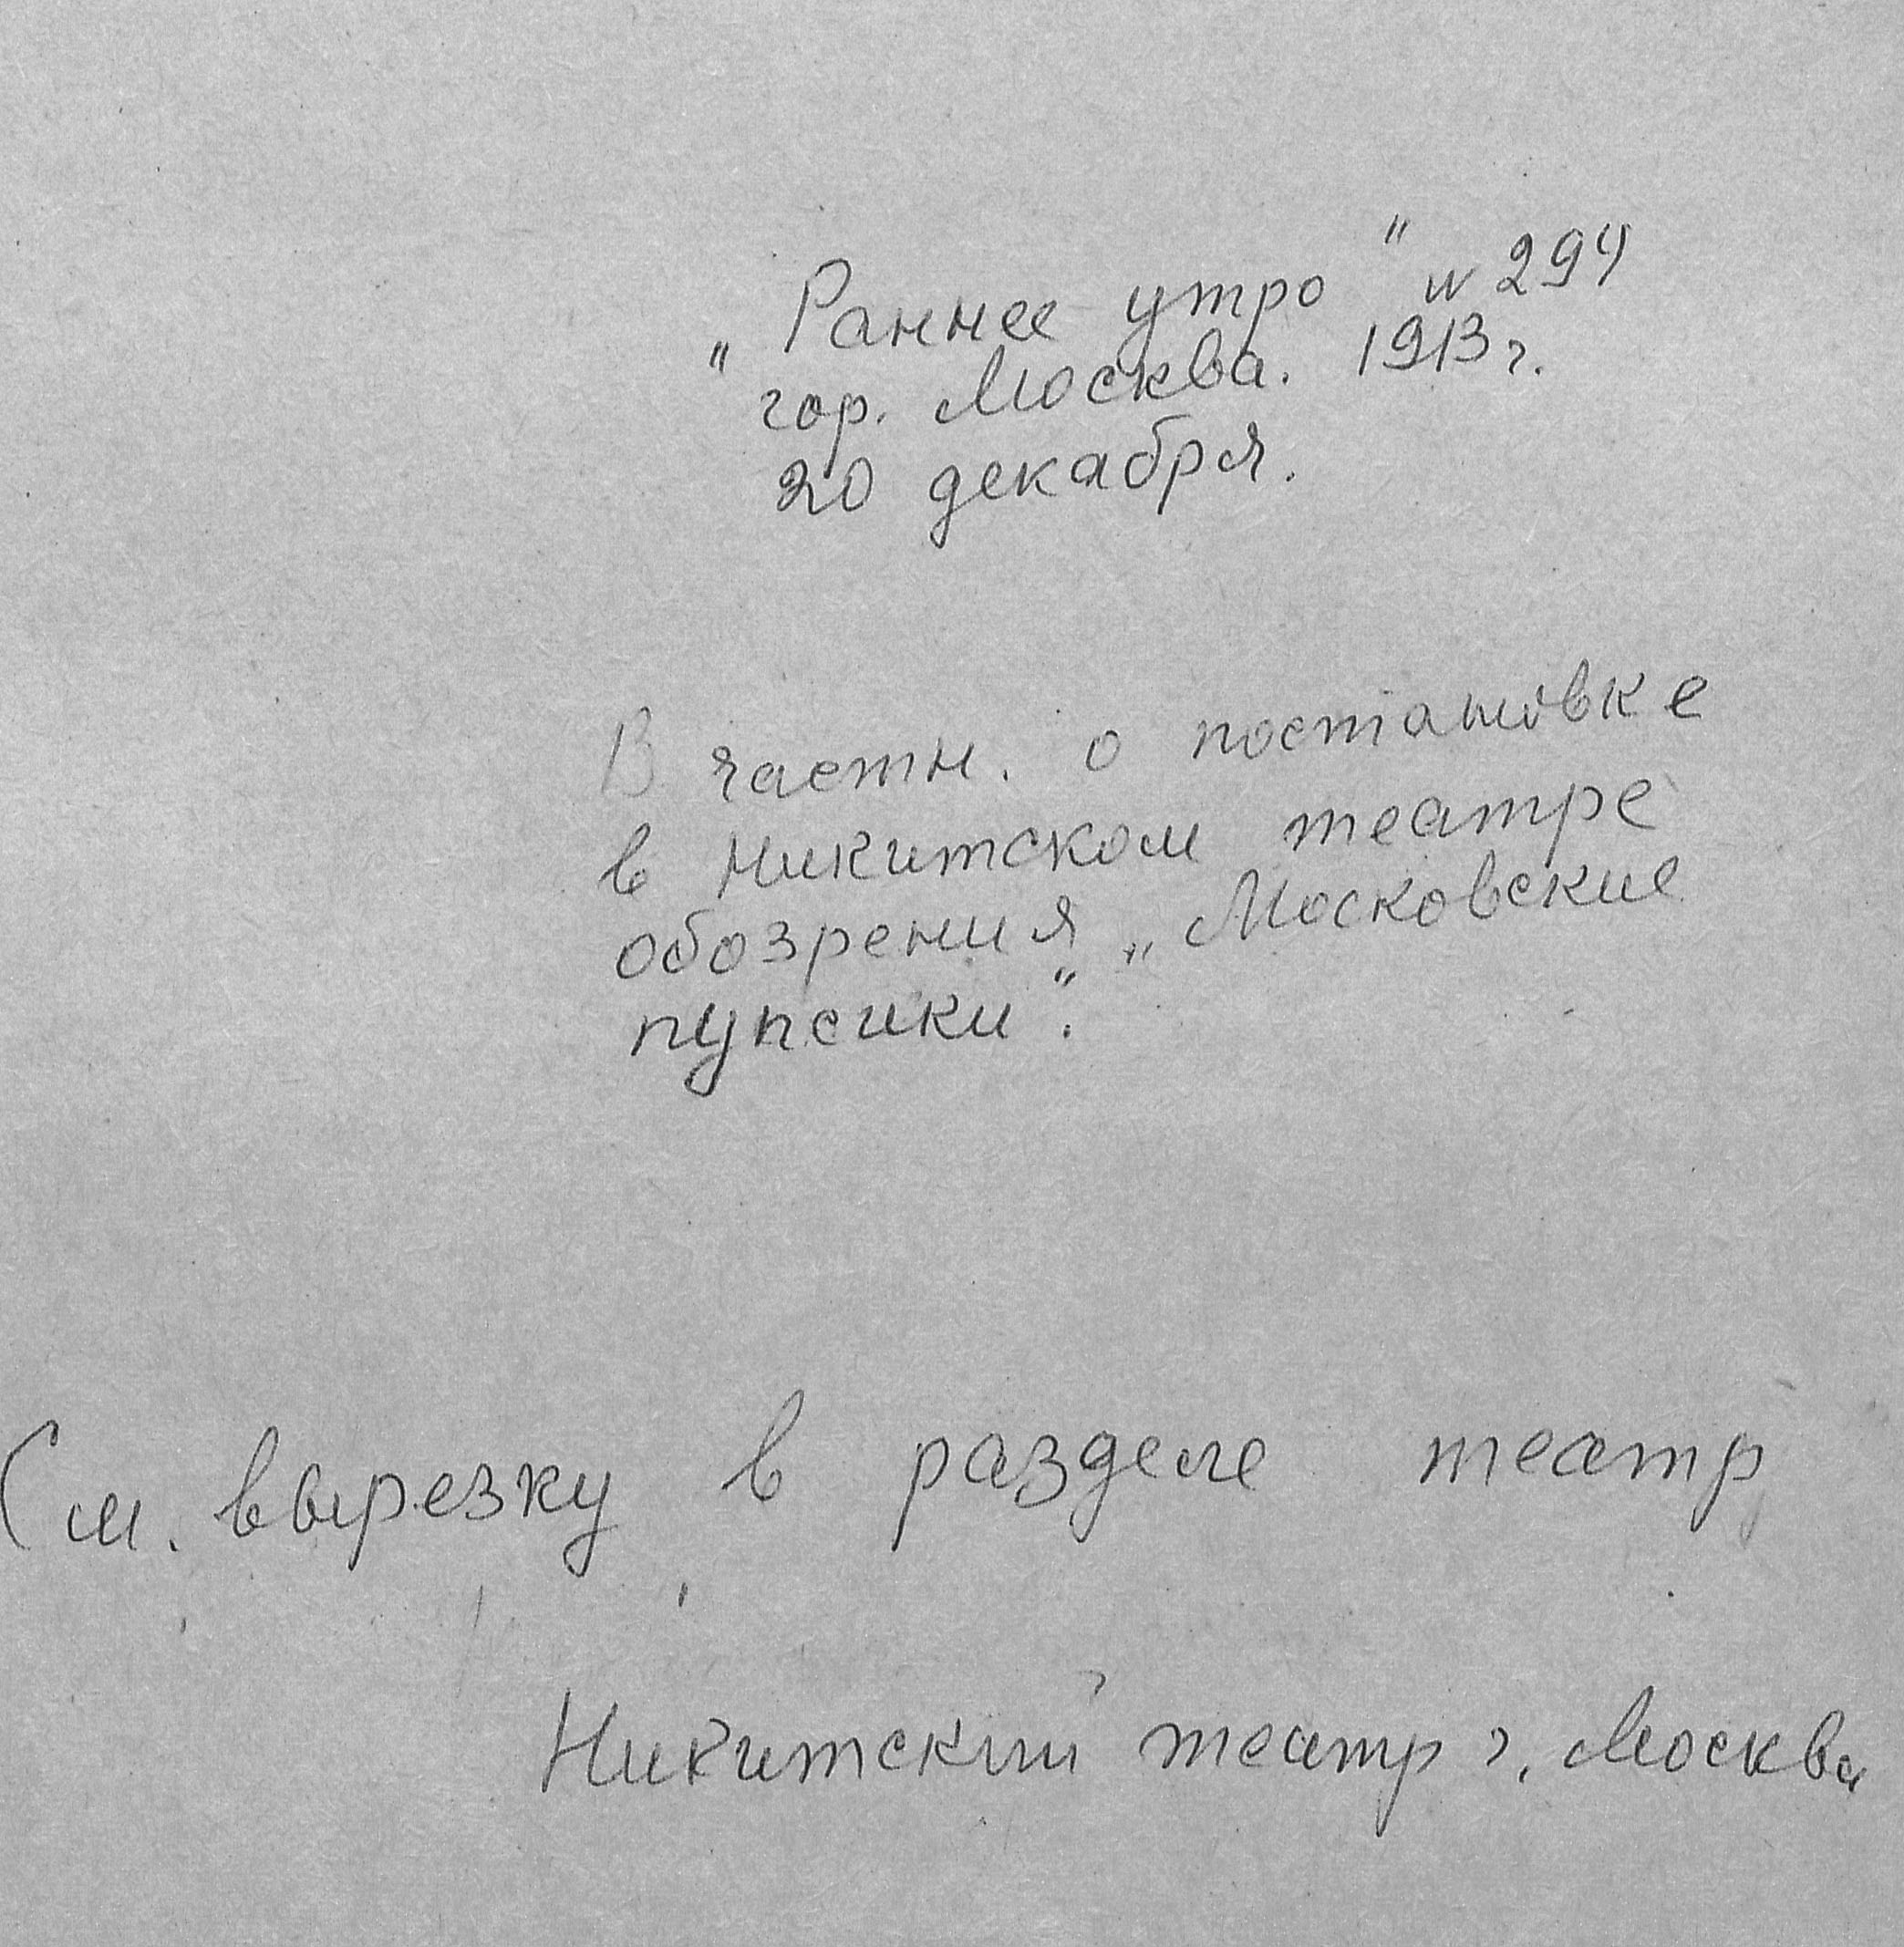 „Раннее утро" N 294
гор. Москва. 1913 г.
20 декабря.
В частн. о постановке
в Никитском театре
обозрения „Московские
пупсики".
См. вырезку в разделе театр
Никитский театр г. Москва